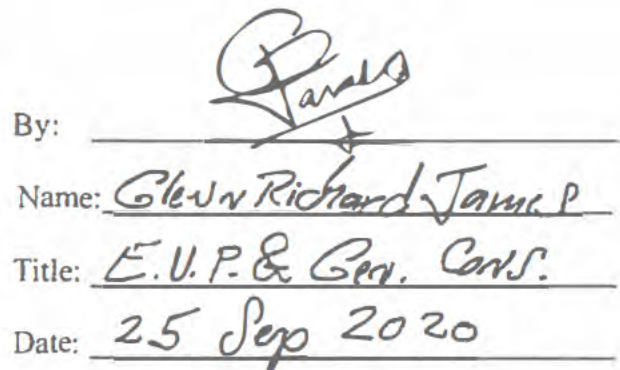 By:
Name: Glenn Richard James
Title: E.V.P. & Gen. Cons.
Date: 25 Sep 2020